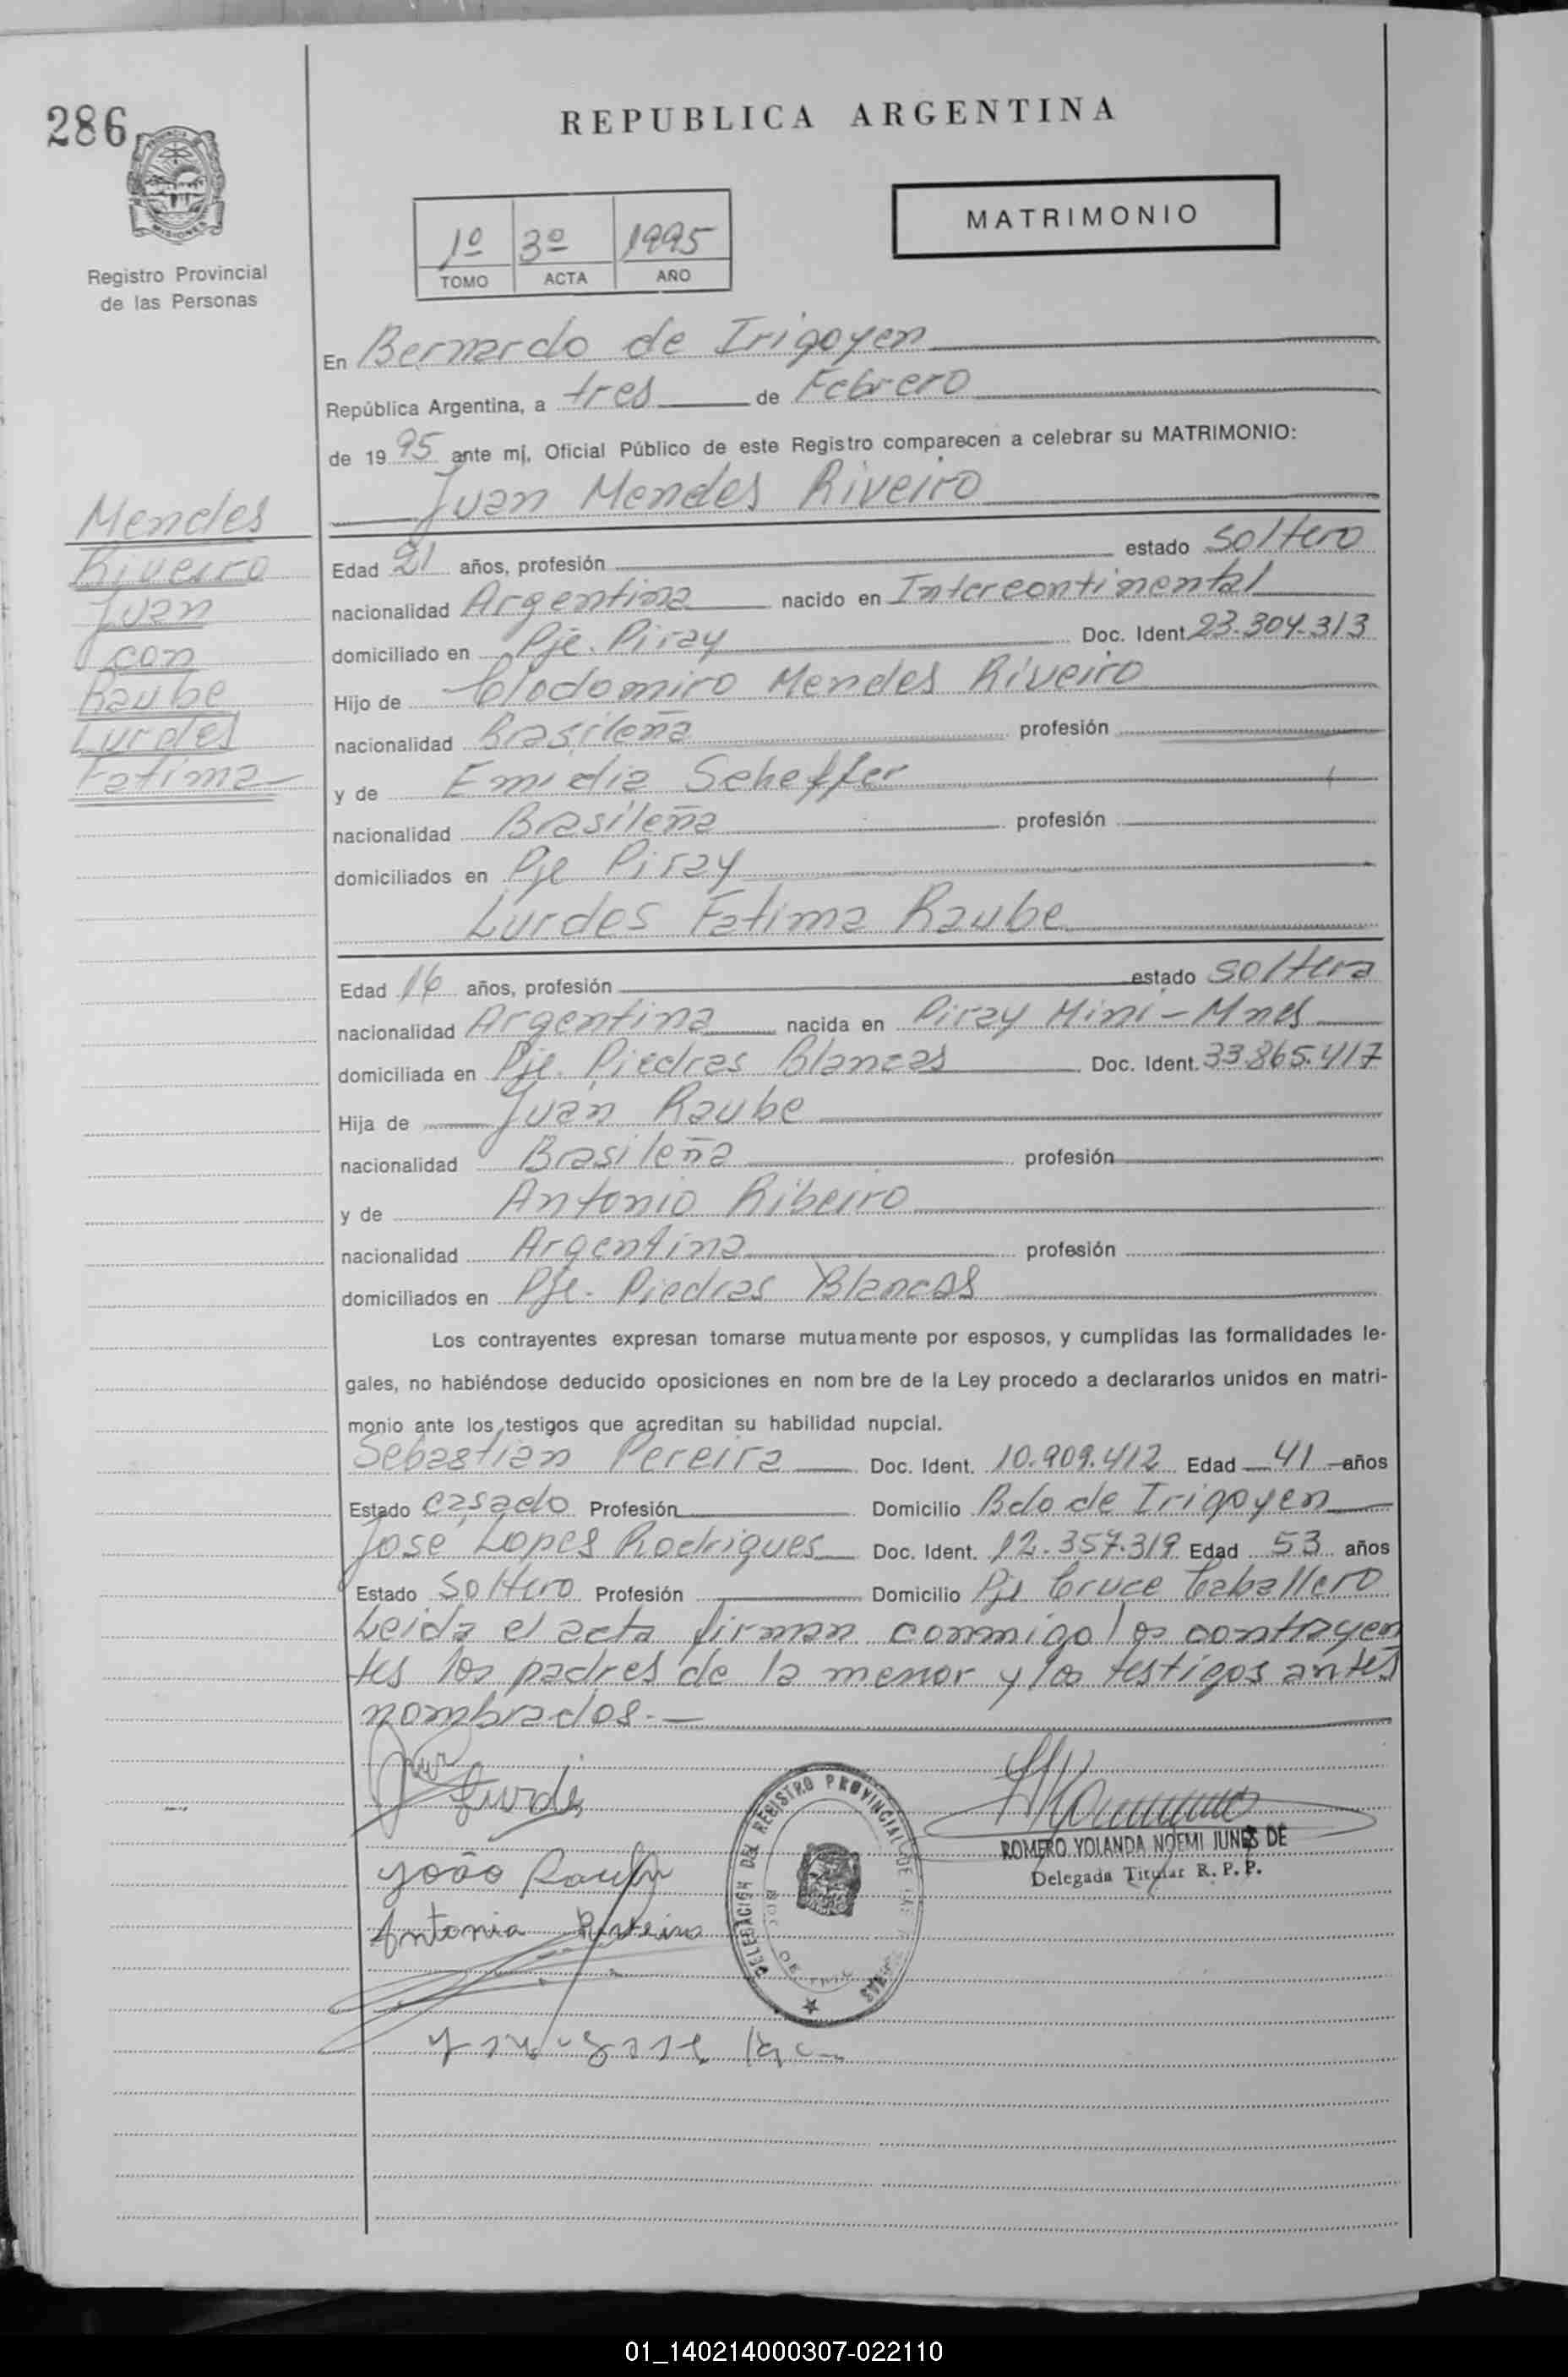 286
REPUBLICA ARGENTINA
MISIONES
Registro Provincial
de las Personas
1º 3º 1995
TOMO ACTA AÑO
MATRIMONIO
En Bernardo de Irigoyen
República Argentina, a tres de Febrero
de 19 95 ante mi, Oficial Público de este Registro comparecen a celebrar su MATRIMONIO:
Juan Mendes Riveiro
Mendes
Riveiro
Juan
con
Raube
Lurdes
Fatima
Edad 21 años, profesión estado Soltero
nacionalidad Argentina nacido en Intercontinental
domiciliado en Pje. Piray Doc. Ident. 23.304.313
Hijo de Clodomiro Mendes Riveiro
nacionalidad Brasileña profesión
y de Emidia Scheffer
nacionalidad Brasileña profesión
domiciliados en Pje Piray
Lurdes Fatima Raube
Edad 16 años, profesión estado Soltera
nacionalidad Argentina nacida en Piray Mini - Mnes
domiciliada en Pje. Piedras Blancas Doc. Ident. 33.865.417
Hija de Juan Raube
nacionalidad Brasileña profesión
y de Antonio Ribeiro
nacionalidad Argentina profesión
domiciliados en Pje. Piedras Blancas
Los contrayentes expresan tomarse mutuamente por esposos, y cumplidas las formalidades le-
gales, no habiéndose deducido oposiciones en nom bre de la Ley procedo a declararlos unidos en matri-
monio ante los testigos que acreditan su habilidad nupcial.
Sebastian Pereira Doc. Ident. 10.909.412 Edad 41 años
Estado casado Profesión Domicilio Bdo de Irigoyen
Jose Lopes Rodrigues Doc. Ident. 12.357.319 Edad 53 años
Estado Soltero Profesión Domicilio Pje Cruce Caballero
Leida el acta firman conmigo los contrayen
tes los padres de la menor y los testigos antes
nombrados.-
Lurdes
João Raube
Antonia Riveiro
DELEGACIÓN DEL REGISTRO PROVINCIAL DE LAS
ROMERO YOLANDA NOEMI JUNES DE
Delegada Titular R. P. P.
01_140214000307-022110